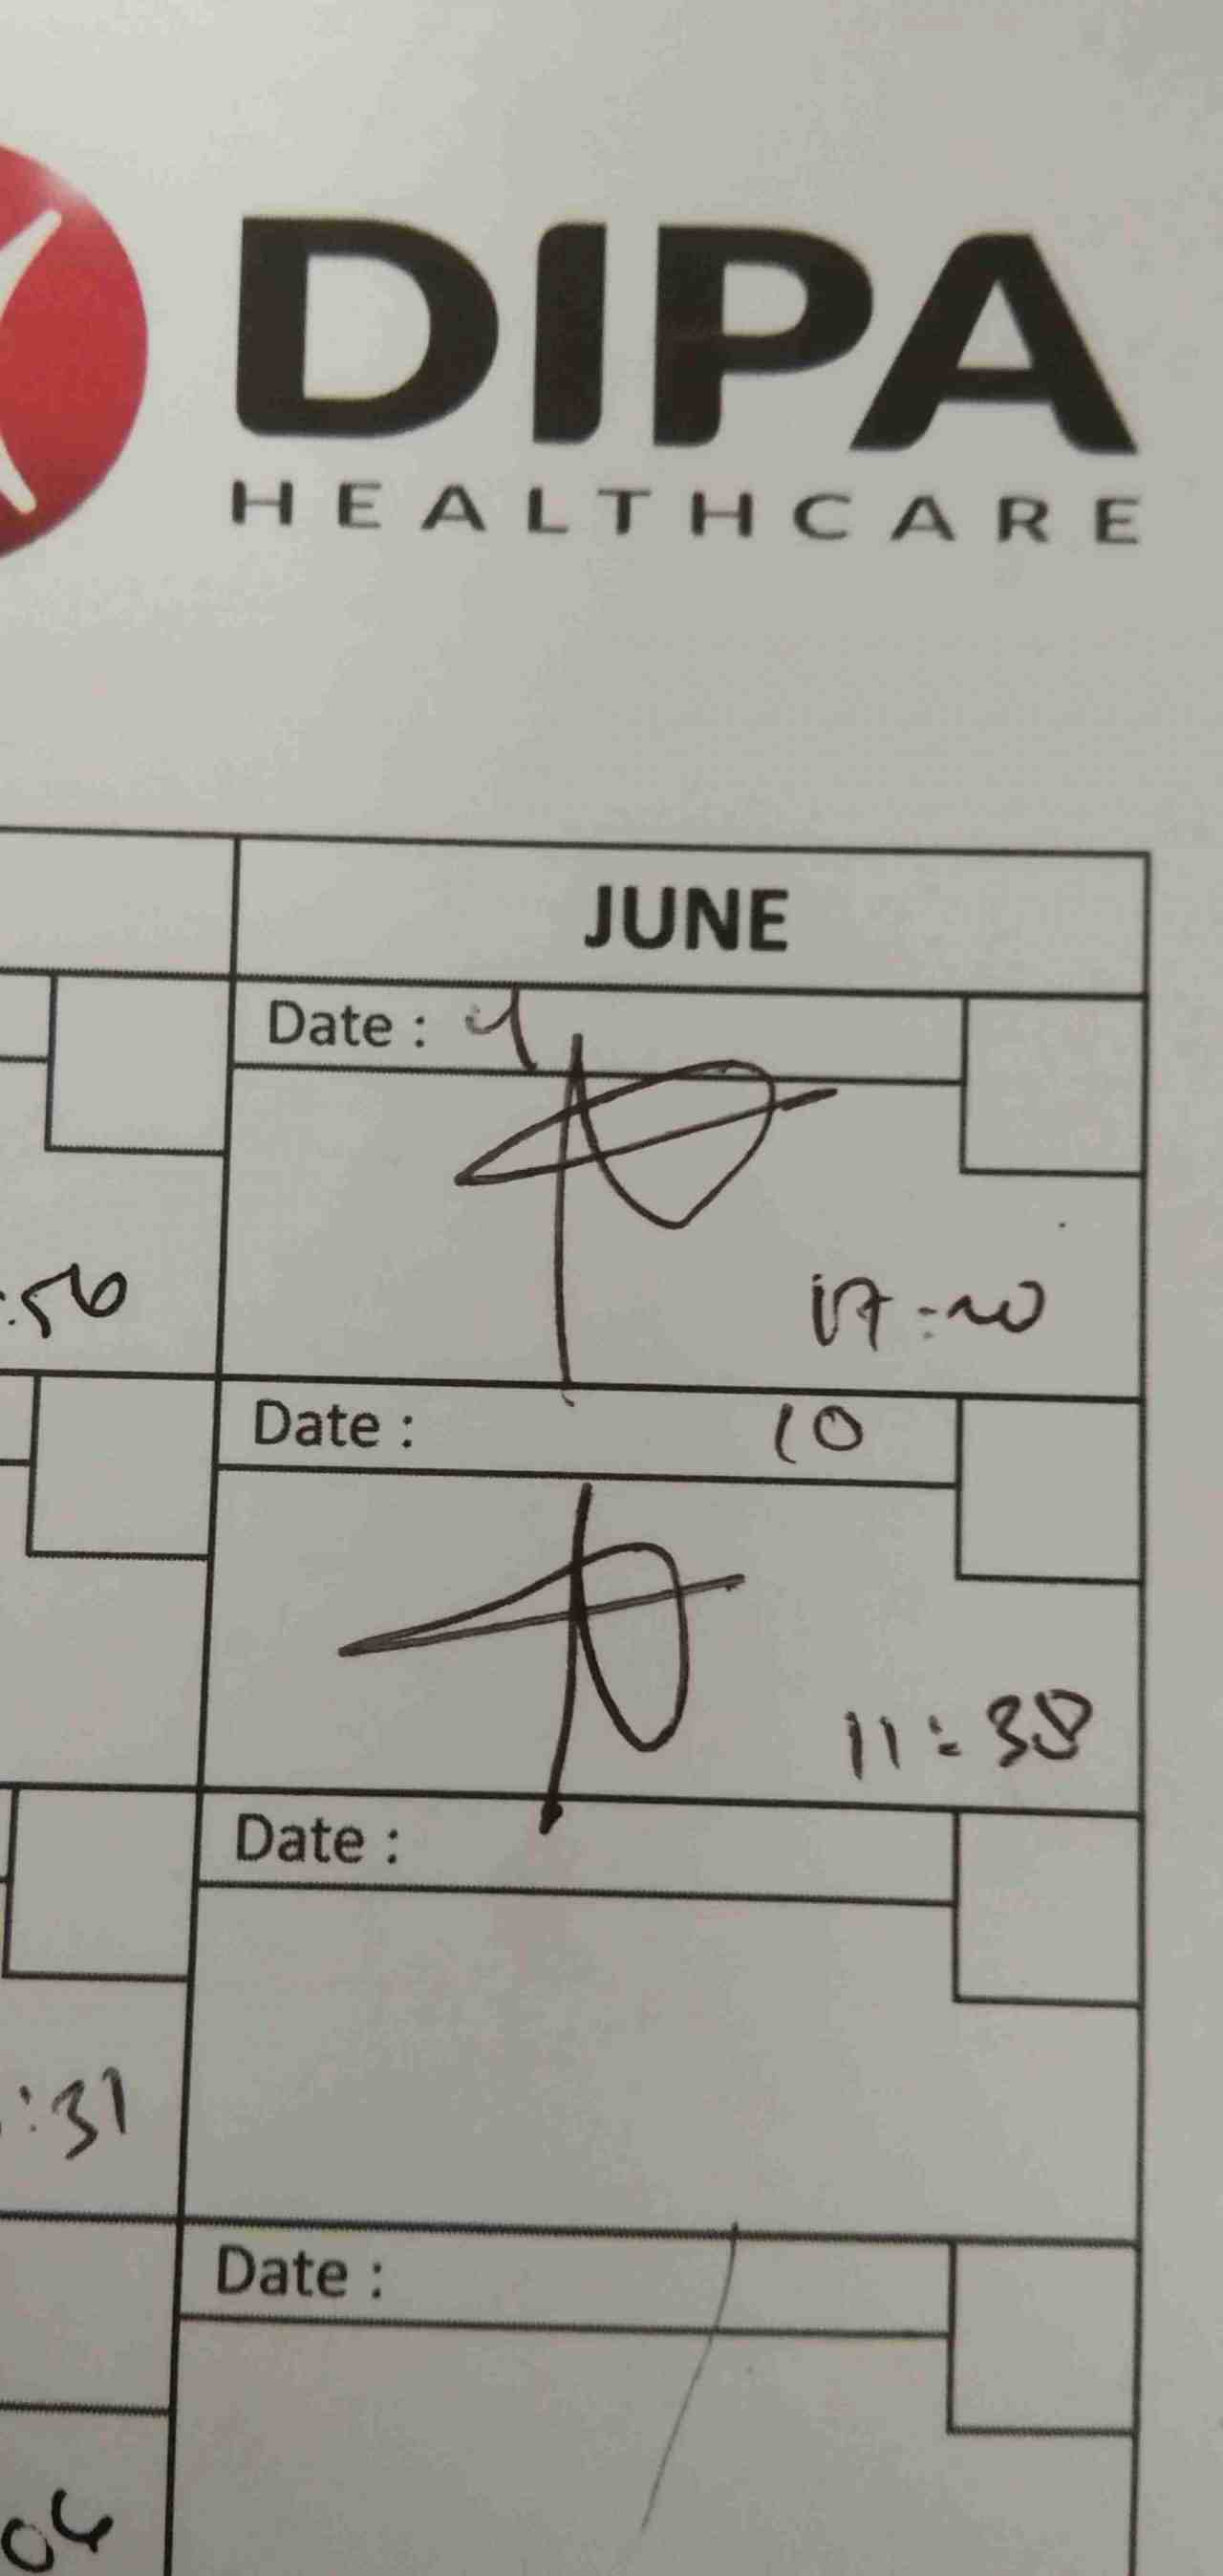 DIPA
HEALTHCARE
JUNE
Date : 4
:56
17:20
Date : 10
11:38
Date :
:31
Date :
06